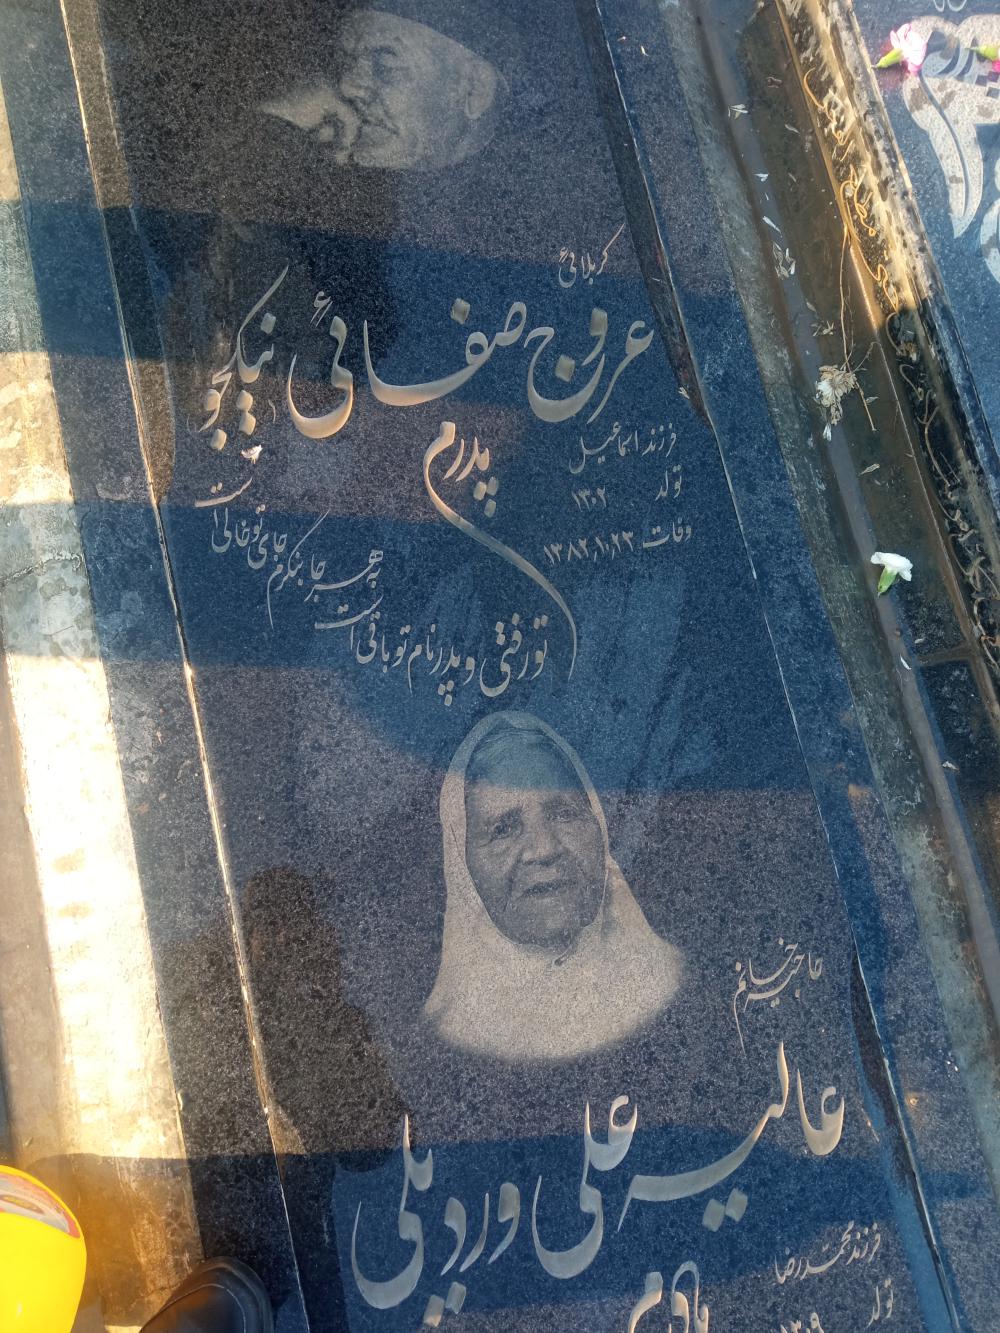 کربلائی
عروج صفائی نیکجو
فرزند اسماعیل
تولد ۱۳۰۲
وفات ۱۳۸۲,۱,۲۳
پدرم
تو رفتی و پدر نام تو باقی است
به هر جا بنگرم جای تو خالی است
حاجیه خانم
عالیه علی وردیلی
فرزند محمدرضا
تولد
۱۳۰۹
مادرم